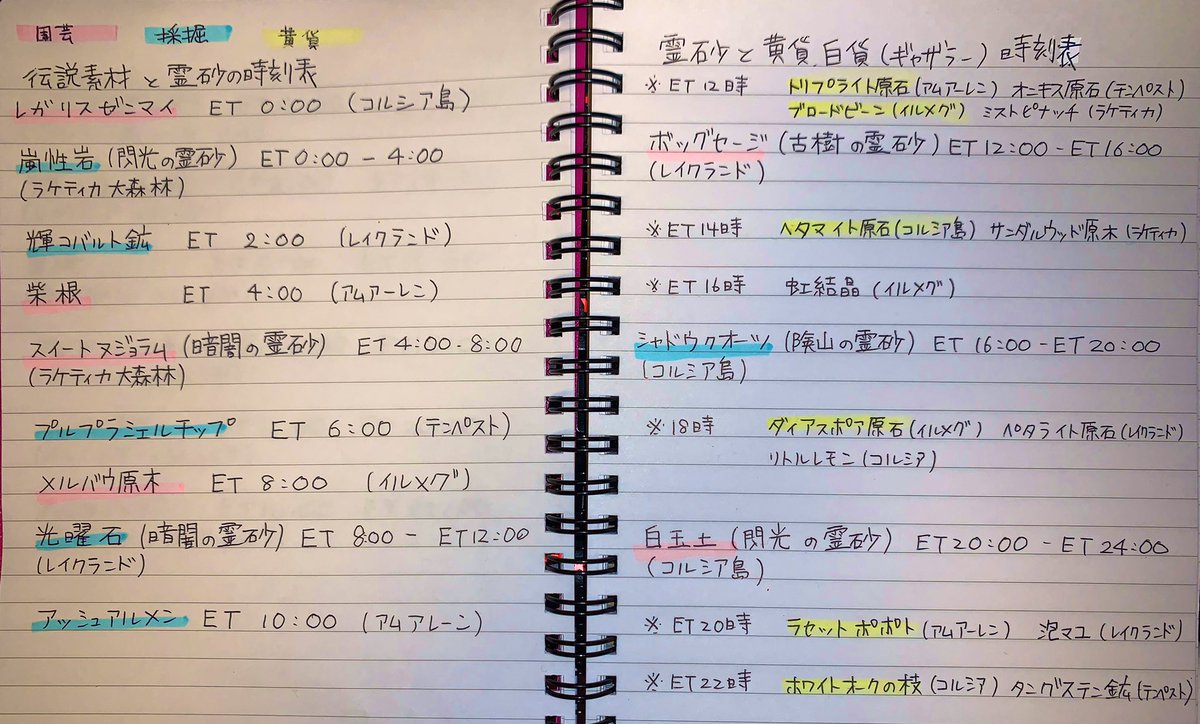 園芸 採掘 黄貨
伝説素材と霊砂の時刻表
レガリスゼニマイ ET 0:00 (コルシア島)
嵐性岩 (閃光の霊砂) ET 0:00 - 4:00
(ラケティカ大森林)
輝コバルト鉱 ET 2:00 (レイクランド)
柴根 ET 4:00 (アムアーレン)
スイートヌジョラム (暗闇の霊砂) ET 4:00-8:00
(ラケティカ大森林)
プルプラシェルチップ ET 6:00 (テンペスト)
メルバウ原木 ET 8:00 (イルメグ)
光曜石 (暗闇の霊砂) ET 8:00 - ET12:00
(レイクランド)
アッシュアルメン ET 10:00 (アムアレーン)
霊石砂と黄貨、白貨(ギャザラー)時刻表
※ET12時 トリプライト原石(アムアーレン) オニキス原石(テンペスト)
ブロードビーン(イルメグ) ミストピナッチ(ラケティカ)
ボッグセージ (古樹の霊砂) ET12:00-ET16:00
(レイクランド)
※ET14時 ヘタマイト原石(コルシア島) サンダルウッド原木(ラケティカ)
※ET16時 虹結晶(イルメグ)
シャドウクオーツ (険山の霊砂) ET 16:00-ET20:00
(コルシア島)
※18時 ダイアスポア原石(イルメグ) ペタライト原石(レイクランド)
リトルレモン(コルシア)
白玉土 (閃光の霊砂) ET20:00 - ET24:00
(コルシア島)
※ET20時 ラセットポポト(アムアーレン) 泡マユ(レイクランド)
※ET22時 ホワイトオークの枝(コルシア) タングステン鉱(テンペスト)